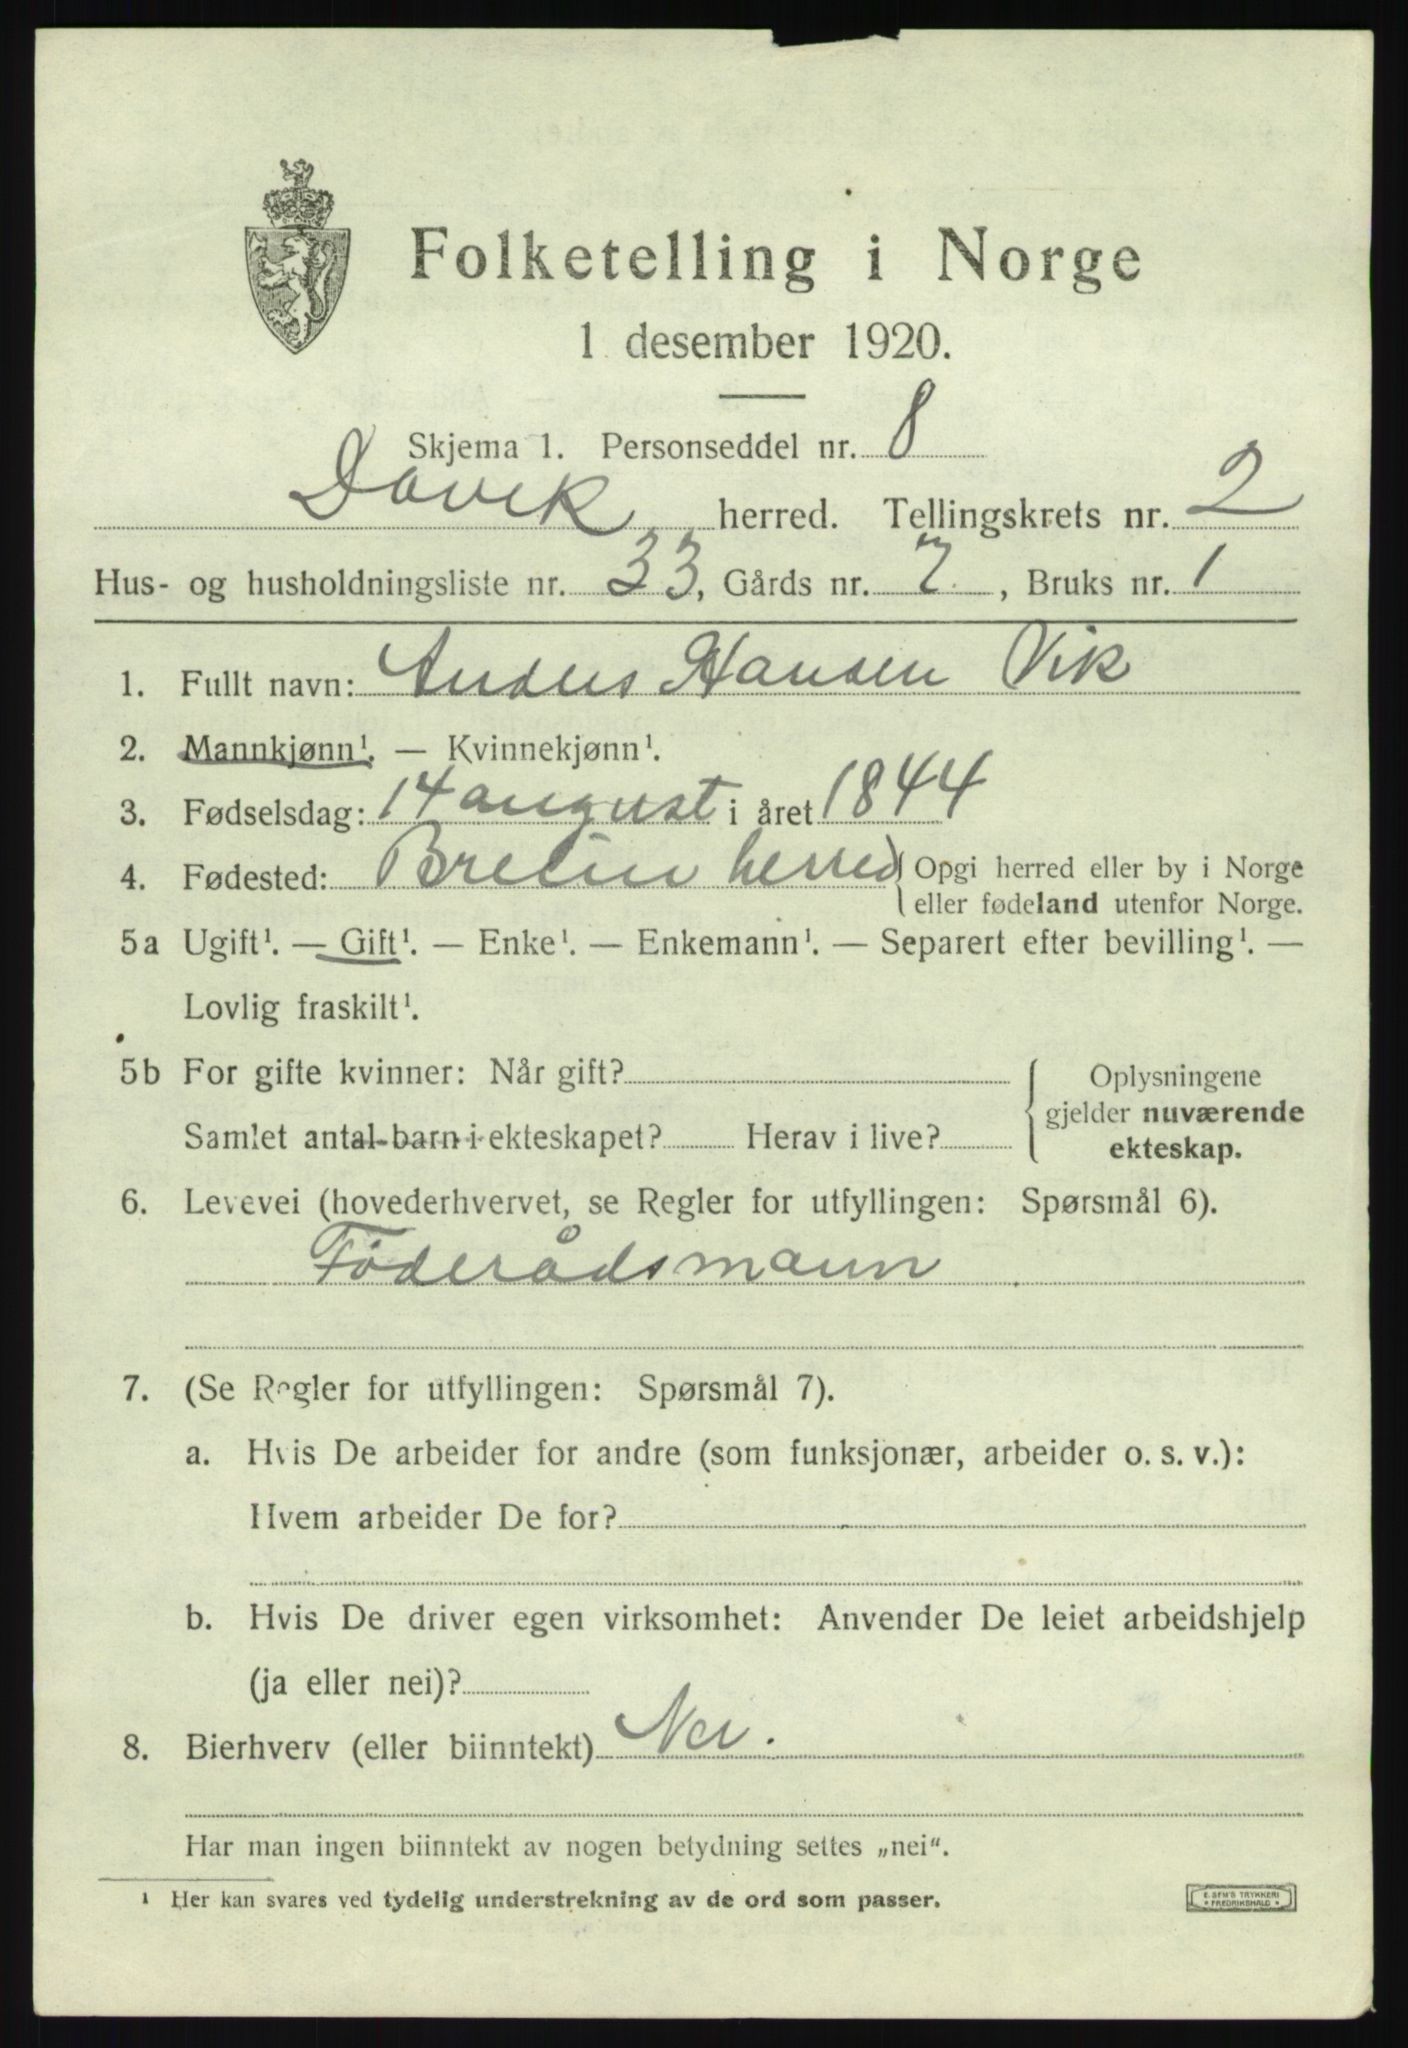 Folketelling i Norge
1 desember 1920.
Skjema 1. Personseddel nr. 8
Davik herred. Tellingskrets nr. 2
Hus- og husholdningsliste nr. 33, Gårds nr. 7, Bruks nr. 1
1. Fullt navn: Anders Hansen Vik
2. Mannkjønn¹. — Kvinnekjønn¹.
3. Fødselsdag: 14 august i året 1844
4. Fødested: herred Opgi herred eller by i Norge
eller fødeland utenfor Norge.
5a Ugift¹. — Gift¹. — Enke¹. — Enkemann¹. — Separert efter bevilling¹. —
Lovlig fraskilt¹.
5b For gifte kvinner: Når gift?
Samlet antal barn i ekteskapet? Herav i live?
Oplysningene
gjelder nuværende
ekteskap.
6. Levevei (hovederhvervet, se Regler for utfyllingen: Spørsmål 6).
Föderådsmann
7. (Se Regler for utfyllingen: Spørsmål 7).
a. Hvis De arbeider for andre (som funksjonær, arbeider o. s. v.):
Hvem arbeider De for?
b. Hvis De driver egen virksomhet: Anvender De leiet arbeidshjelp
(ja eller nei)?
8. Bierhverv (eller biinntekt) Nei.
Har man ingen biinntekt av nogen betydning settes „nei“.
¹ Her kan svares ved tydelig understrekning av de ord som passer.
E. SEM'S TRYKKERI
* FREDRIKSHALD *